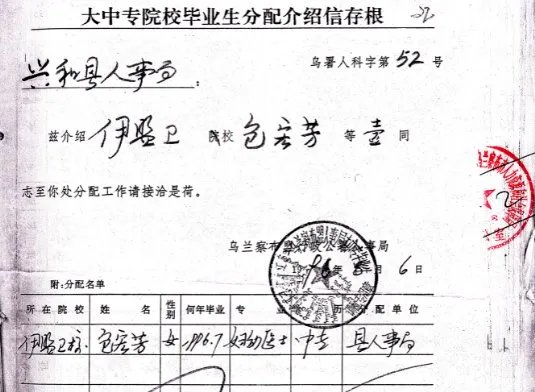 大中专院校毕业生分配介绍信存根 22
乌署人科字第 52 号
兴和县人事局：
兹介绍 伊盟卫 院校 包宏芳 等 壹 同
志至你处分配工作请接洽是荷。
乌兰察布盟行政公署人事局
1996 年 8 月 6 日
附：分配名单
所在院校 姓名 性别 何年毕业 专业 学历 分配单位
伊盟卫校 包宏芳 女 1996.7 妇幼医士 中专 县人事局